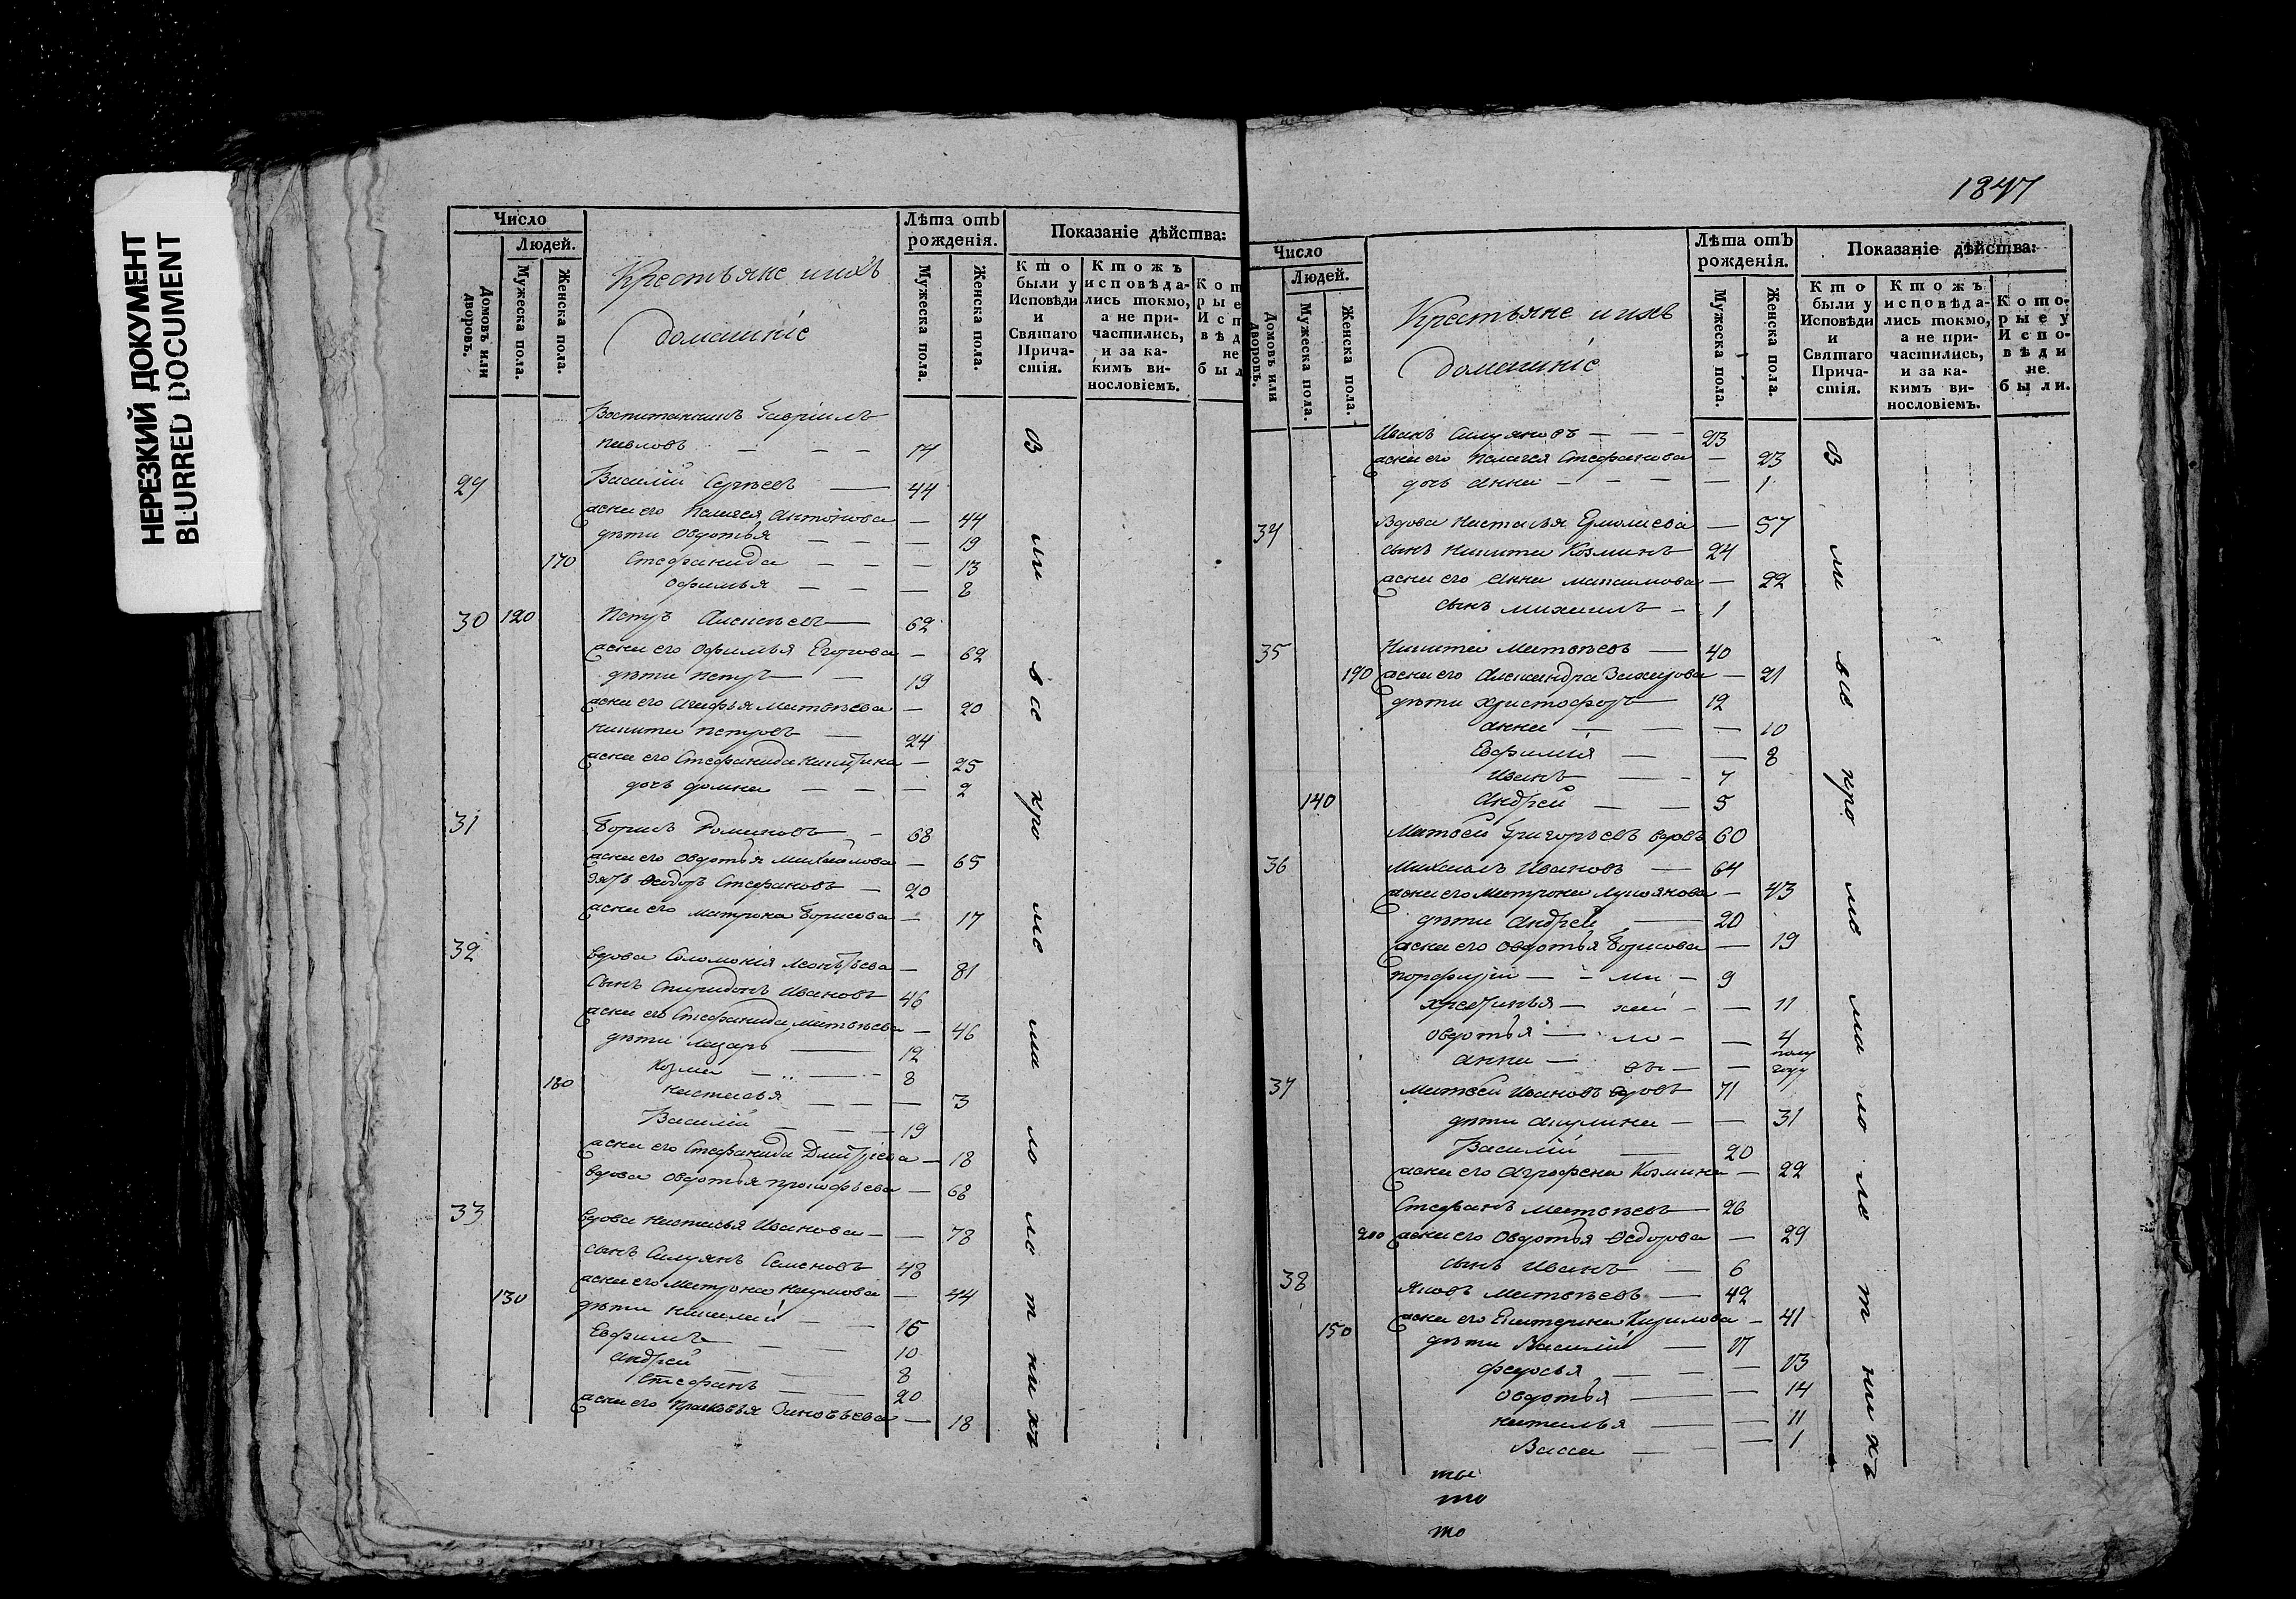 НЕРЕЗКИЙ ДОКУМЕНТ
BLURRED DOCUMENT
Число
Людей.
Домовъ или дворовъ.
Мужеска пола.
Женска пола.
Крестьяне и ихъ
домашніе
Лѣта отъ рожденія.
Мужеска пола.
Женска пола.
Показаніе дѣйства:
Кто были у Исповѣди и Святаго Прича-стія.
Ктожъ исповѣда-лись токмо, а не при-частились, и за ка-кимъ ви-нословіемъ.
Кот рые Исп вѣд не был
Воспитанникъ Гавріилъ
Павловъ — — — 17
29 Василій Сергѣевъ — 44
жена его Пелагея Антонова — 44
дѣти Овдотья — — — 19
170 Стефанида — — — 13
Офимья — — — 8
30 120 Петръ Алексѣевъ — 62
жена его Офимья Егорова — 62
дѣти Петръ — 19
жена его Агафья Матвѣева — 20
Никита Петровъ — 24
жена его Стефанида Никитина — 25
дочь Домна — — — 2
31 Борисъ Романовъ — 68
жена его Овдотья Михайлова — 65
зять Ѳеодоръ Стефановъ — 20
жена его Матрона Борисова — 17
32 Вдова Соломонія Леонтьева — 81
Сынъ Спиридонъ Ивановъ 46
жена его Стефанида Матвѣева — 46
дѣти Лазарь — 12
Козма — 8
180 Настасья — — — 3
Василій — — — 19
жена его Стефанида Дмитріева — 18
вдова Овдотья Прокофьева — 68
33 Вдова Настасья Иванова — — 78
сынъ Силуянъ Семеновъ 48
130 жена его Матрона Наумова — 44
дѣти Николай — — 16
Евфимъ — — 10
Андрей — — 8
Стефанъ — — 20
жена его Прасковья Зиновьева — 18
В
ѣи
все
кро
ме
ма
ло
лѣ
т
ни
хъ
1847
Число
Людей.
Домовъ или дворовъ.
Мужеска пола.
Женска пола.
Крестьяне и ихъ
домашніе
Лѣта отъ рожденія.
Мужеска пола.
Женска пола.
Показаніе дѣйства:
Кто были у Исповѣди и Святаго Прича-стія.
Ктожъ исповѣда-лись токмо, а не при-частились, и за ка-кимъ ви-нословіемъ.
Кото-рые у Испо-вѣди не были.
Иванъ Силуяновъ — — — 23
жена его Пелагея Стефанова — 23
дочь Анна — — — — 1
34 Вдова Настасья Ермолаева — 57
сынъ Никита Козминъ — 24
жена его Анна Максимова — 22
сынъ Михаилъ — 1
35 Никита Матвѣевъ — 40
190 жена его Александра Захарова — 21
дѣти Христофоръ — 12
Анна — — — 10
Евфимія — — 8
Иванъ — — 7
140 Андрей — — 5
Матвей Григорьевъ вдовъ 60
36 Михаилъ Ивановъ — 64
жена его Матрона Лукоянова — 43
дѣти Андрей — 20
жена его Овдотья Борисова — 19
Порфирій — — 9
Христинья — — 11
Овдотья — — 4
Анна — — полу году
37 Матвей Ивановъ вдовъ 71
дѣти Акулина — — 31
Василій — 20
жена его Аграфена Козмина — 22
Стефанъ Матвѣевъ — 26
200 жена его Овдотья Ѳедорова — 29
сынъ Иванъ — 6
38 Яковъ Матвѣевъ — 42
жена его Екатерина Кирилова — 41
150 дѣти Василій — 17
Федосья — — 13
Овдотья — — 14
Наталья — — 11
Васса — — — 1
В
ѣи
все
кро
ме
ма
ло
лѣ
т
ни
хъ